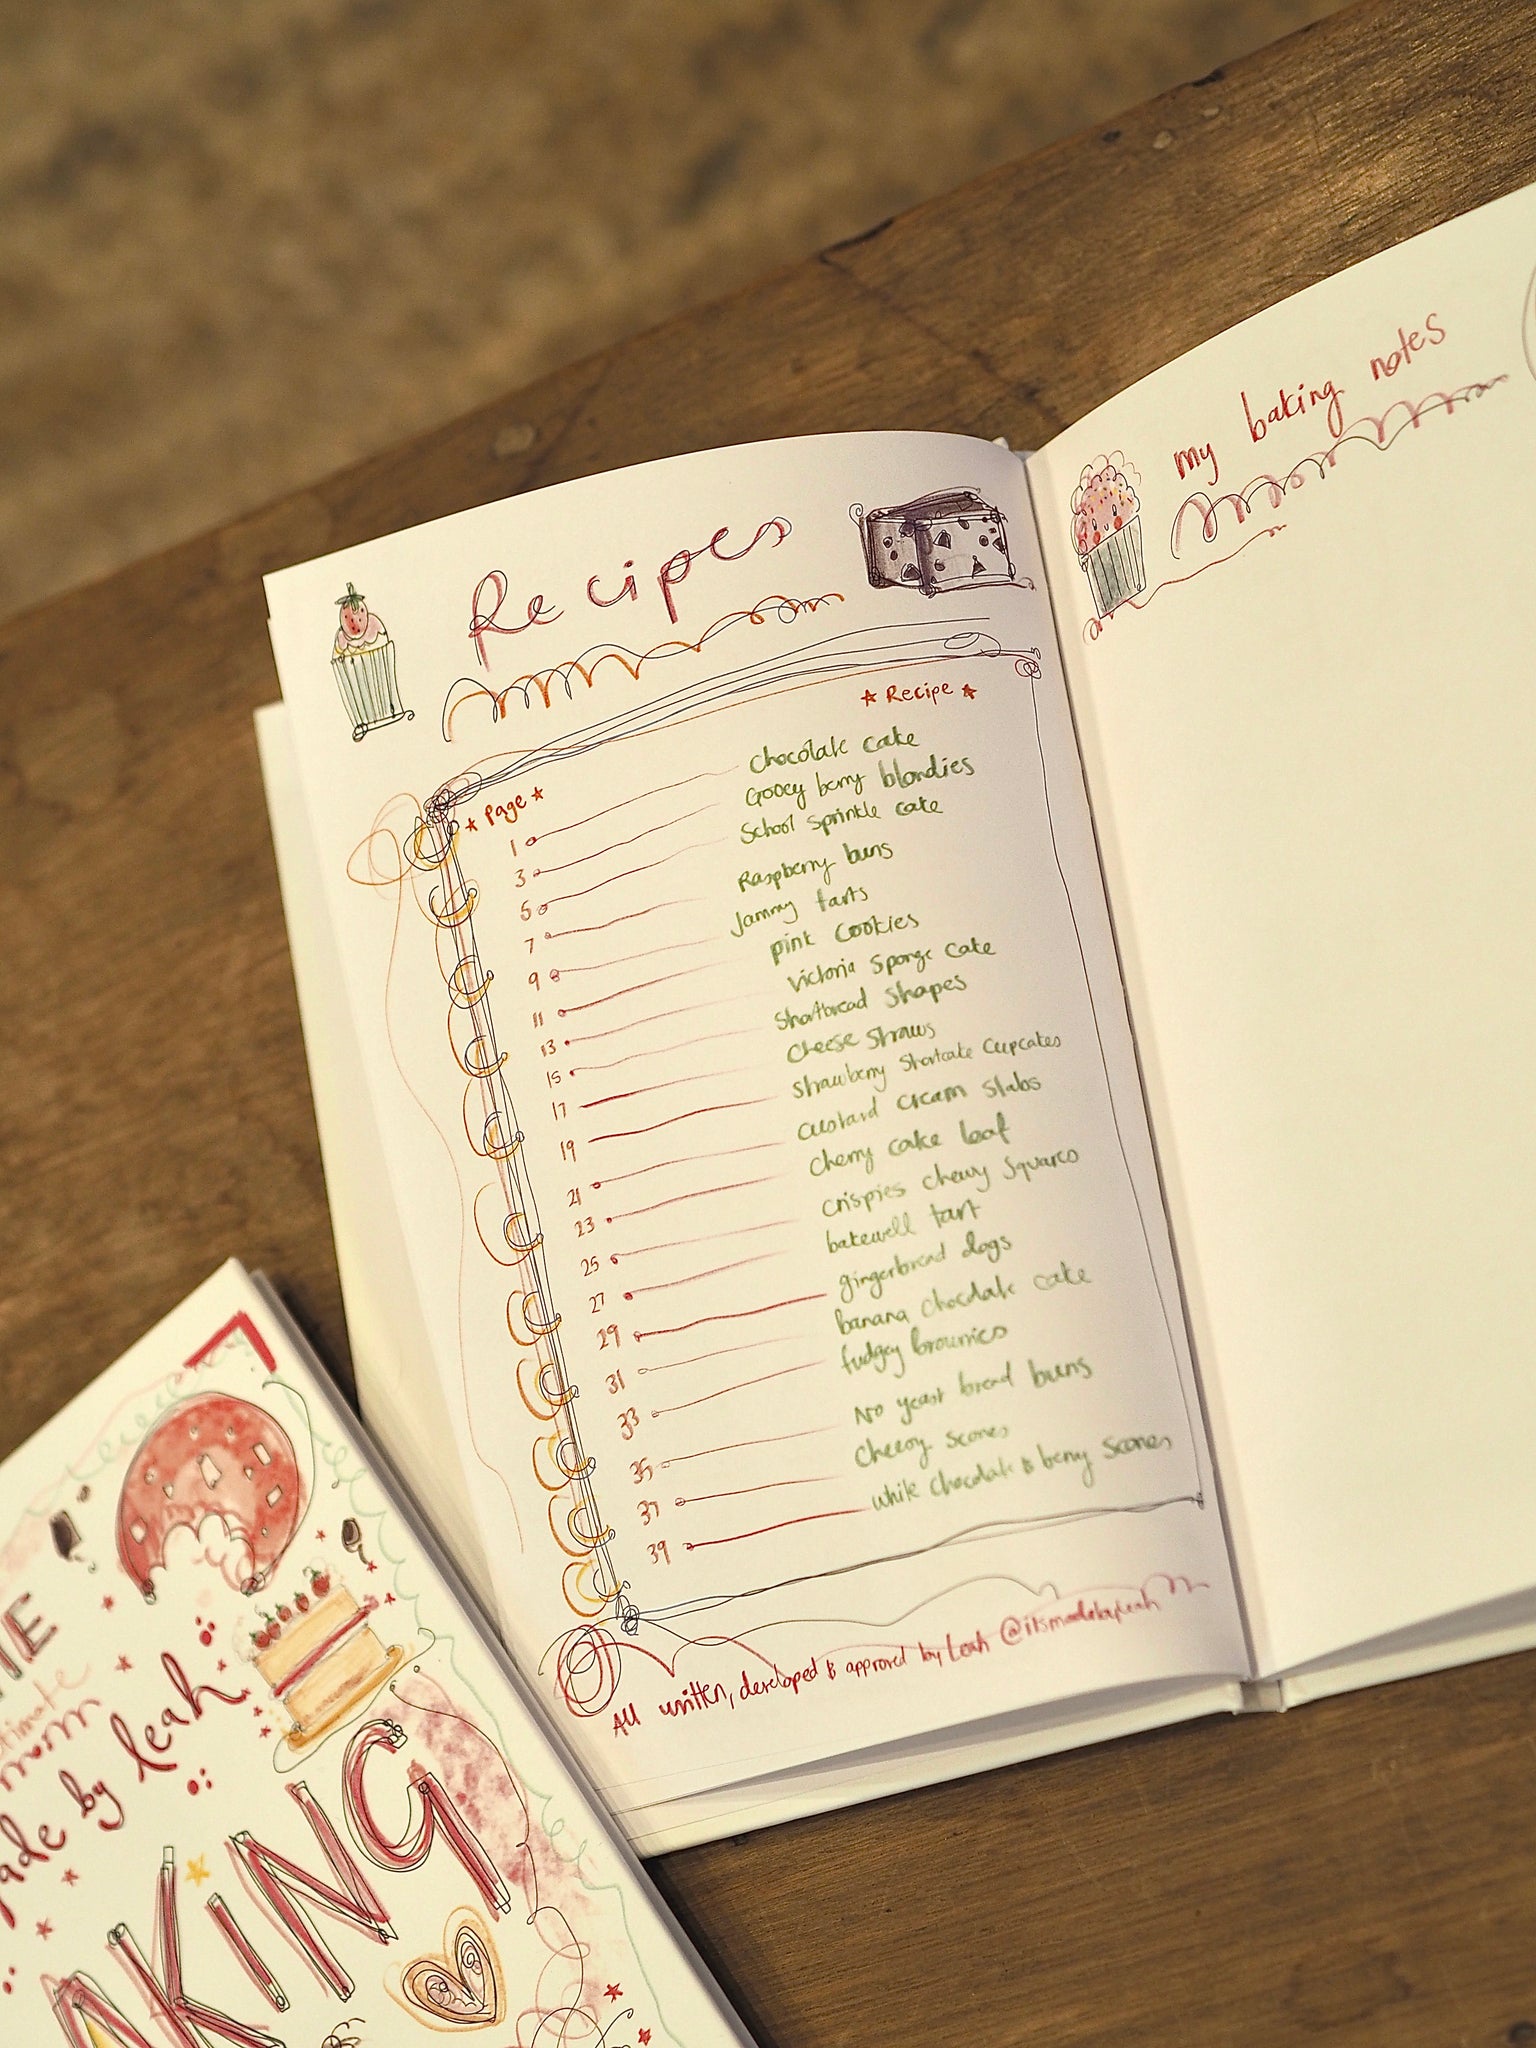 Recipes
★ Page ★ ★ Recipe ★
1 chocolate cake
3 Gooey berry blondies
5 School sprinkle cake
7 Raspberry buns
9 Jammy tarts
11 pink cookies
13 victoria sponge cake
15 Shortbread shapes
17 cheese straws
19 strawberry shortcake cupcakes
21 custard cream slabs
23 cherry cake loaf
25 crispies chewy squares
27 bakewell tart
29 gingerbread dogs
31 banana chocolate cake
33 fudgey brownies
35 No yeast bread buns
37 cheesy scones
39 white chocolate & berry scones
All written, developed & approved by Leah @itsmadebyleah
my baking notes
made by leah
BAKING